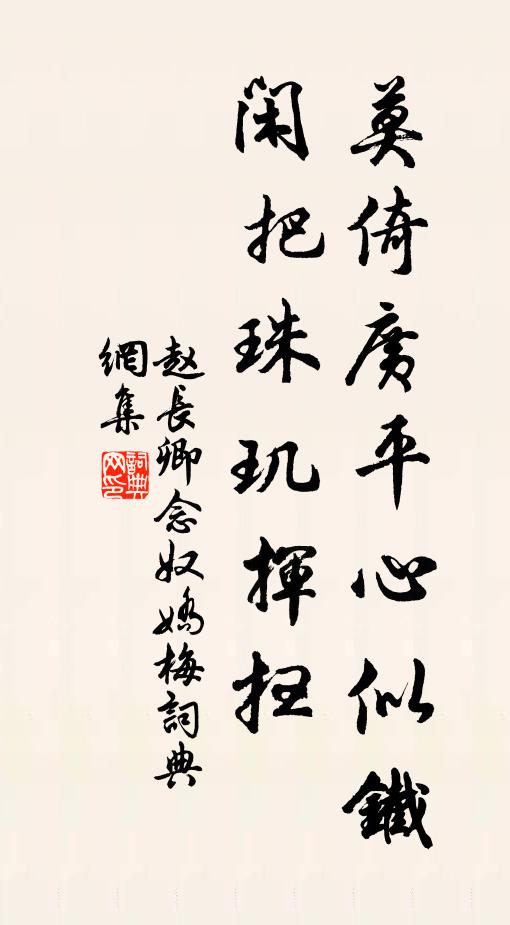 莫倚廣平心似鐵
閑把珠玑揮扭
赵長卿念奴嬌梅詞典
網集
詞典
网印